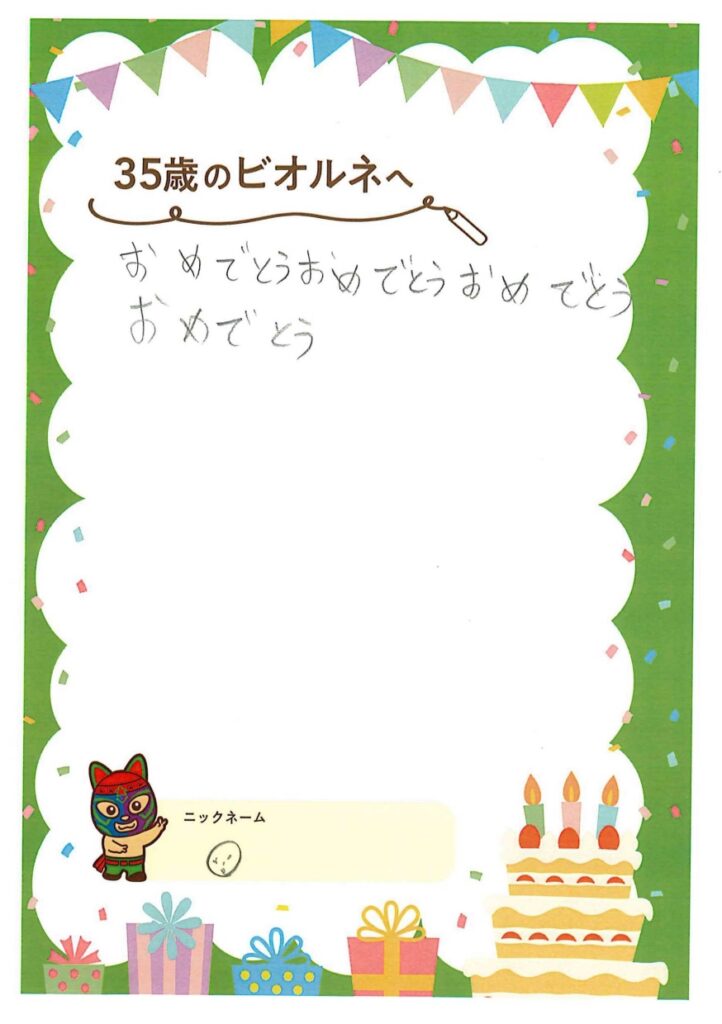 35歳のビオルネへ
おめでとうおめでとうおめでとう
おめでとう
ニックネーム